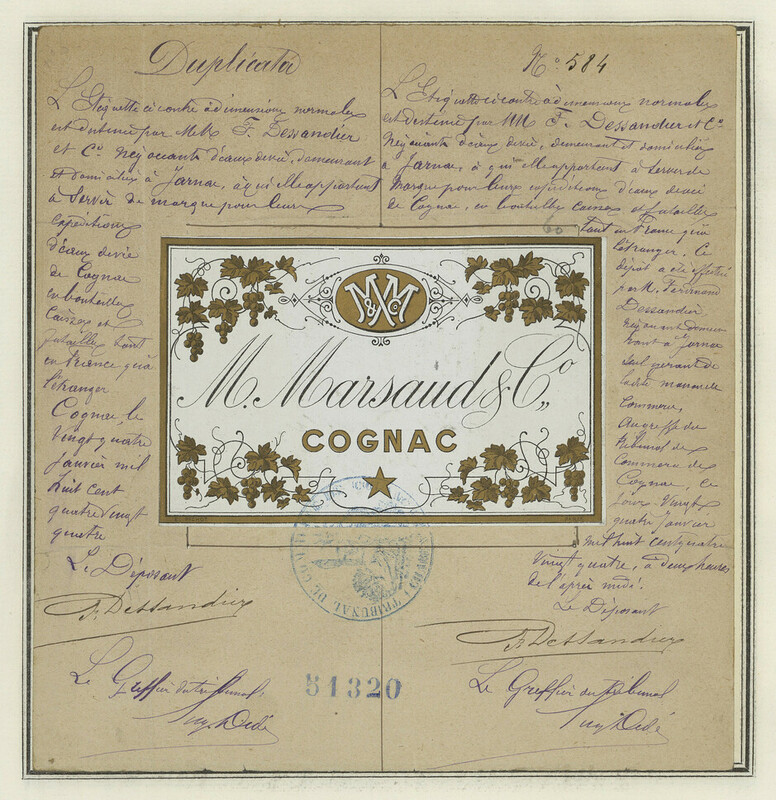 Duplicata
L'Étiquette ci contre à dimensions normales
est destinée par MM F. Dessandier
et Co. Négociants d'eaux de vie, demeurant
et domiciliés à Jarnac, à qui elle appartient
à Servir de marque pour leurs
expéditions
d'eaux de vie
de Cognac
en bouteilles
Caisses et
futailles tant
en France qu'à
l'étranger
Cognac, le
Vingt quatre
Janvier mil
huit cent
quatre vingt
quatre
Le Déposant
F. Dessandier
Le Greffier du tribunal
No. 584
L'Étiquette ci contre à dimensions normales
est destinée par MM F. Dessandier et Co
Négociants d'eaux de vie, demeurant et domiciliés
à Jarnac, à qui elle appartient à Servir de
marque pour leurs expéditions d'eaux de vie
de Cognac, en bouteilles Caisses et futailles
tant en France qu'à
l'étranger. Ce
dépôt a été effectué
par M. Ferdinand
Dessandier
Négociant demeu
rant à Jarnac
Seul gérant de
la dite maison de
Commerce,
Au greffe du
tribunal de
Commerce de
Cognac, ce
jour Vingt
quatre Janvier
mil huit cent quatre
Vingt quatre, à deux heures
de l'après midi.
Le Déposant
F. Dessandier
Le Greffier du tribunal
M & Co M
M. Marsaud & Co
COGNAC
TRIBUNAL DE COMMERCE
51320